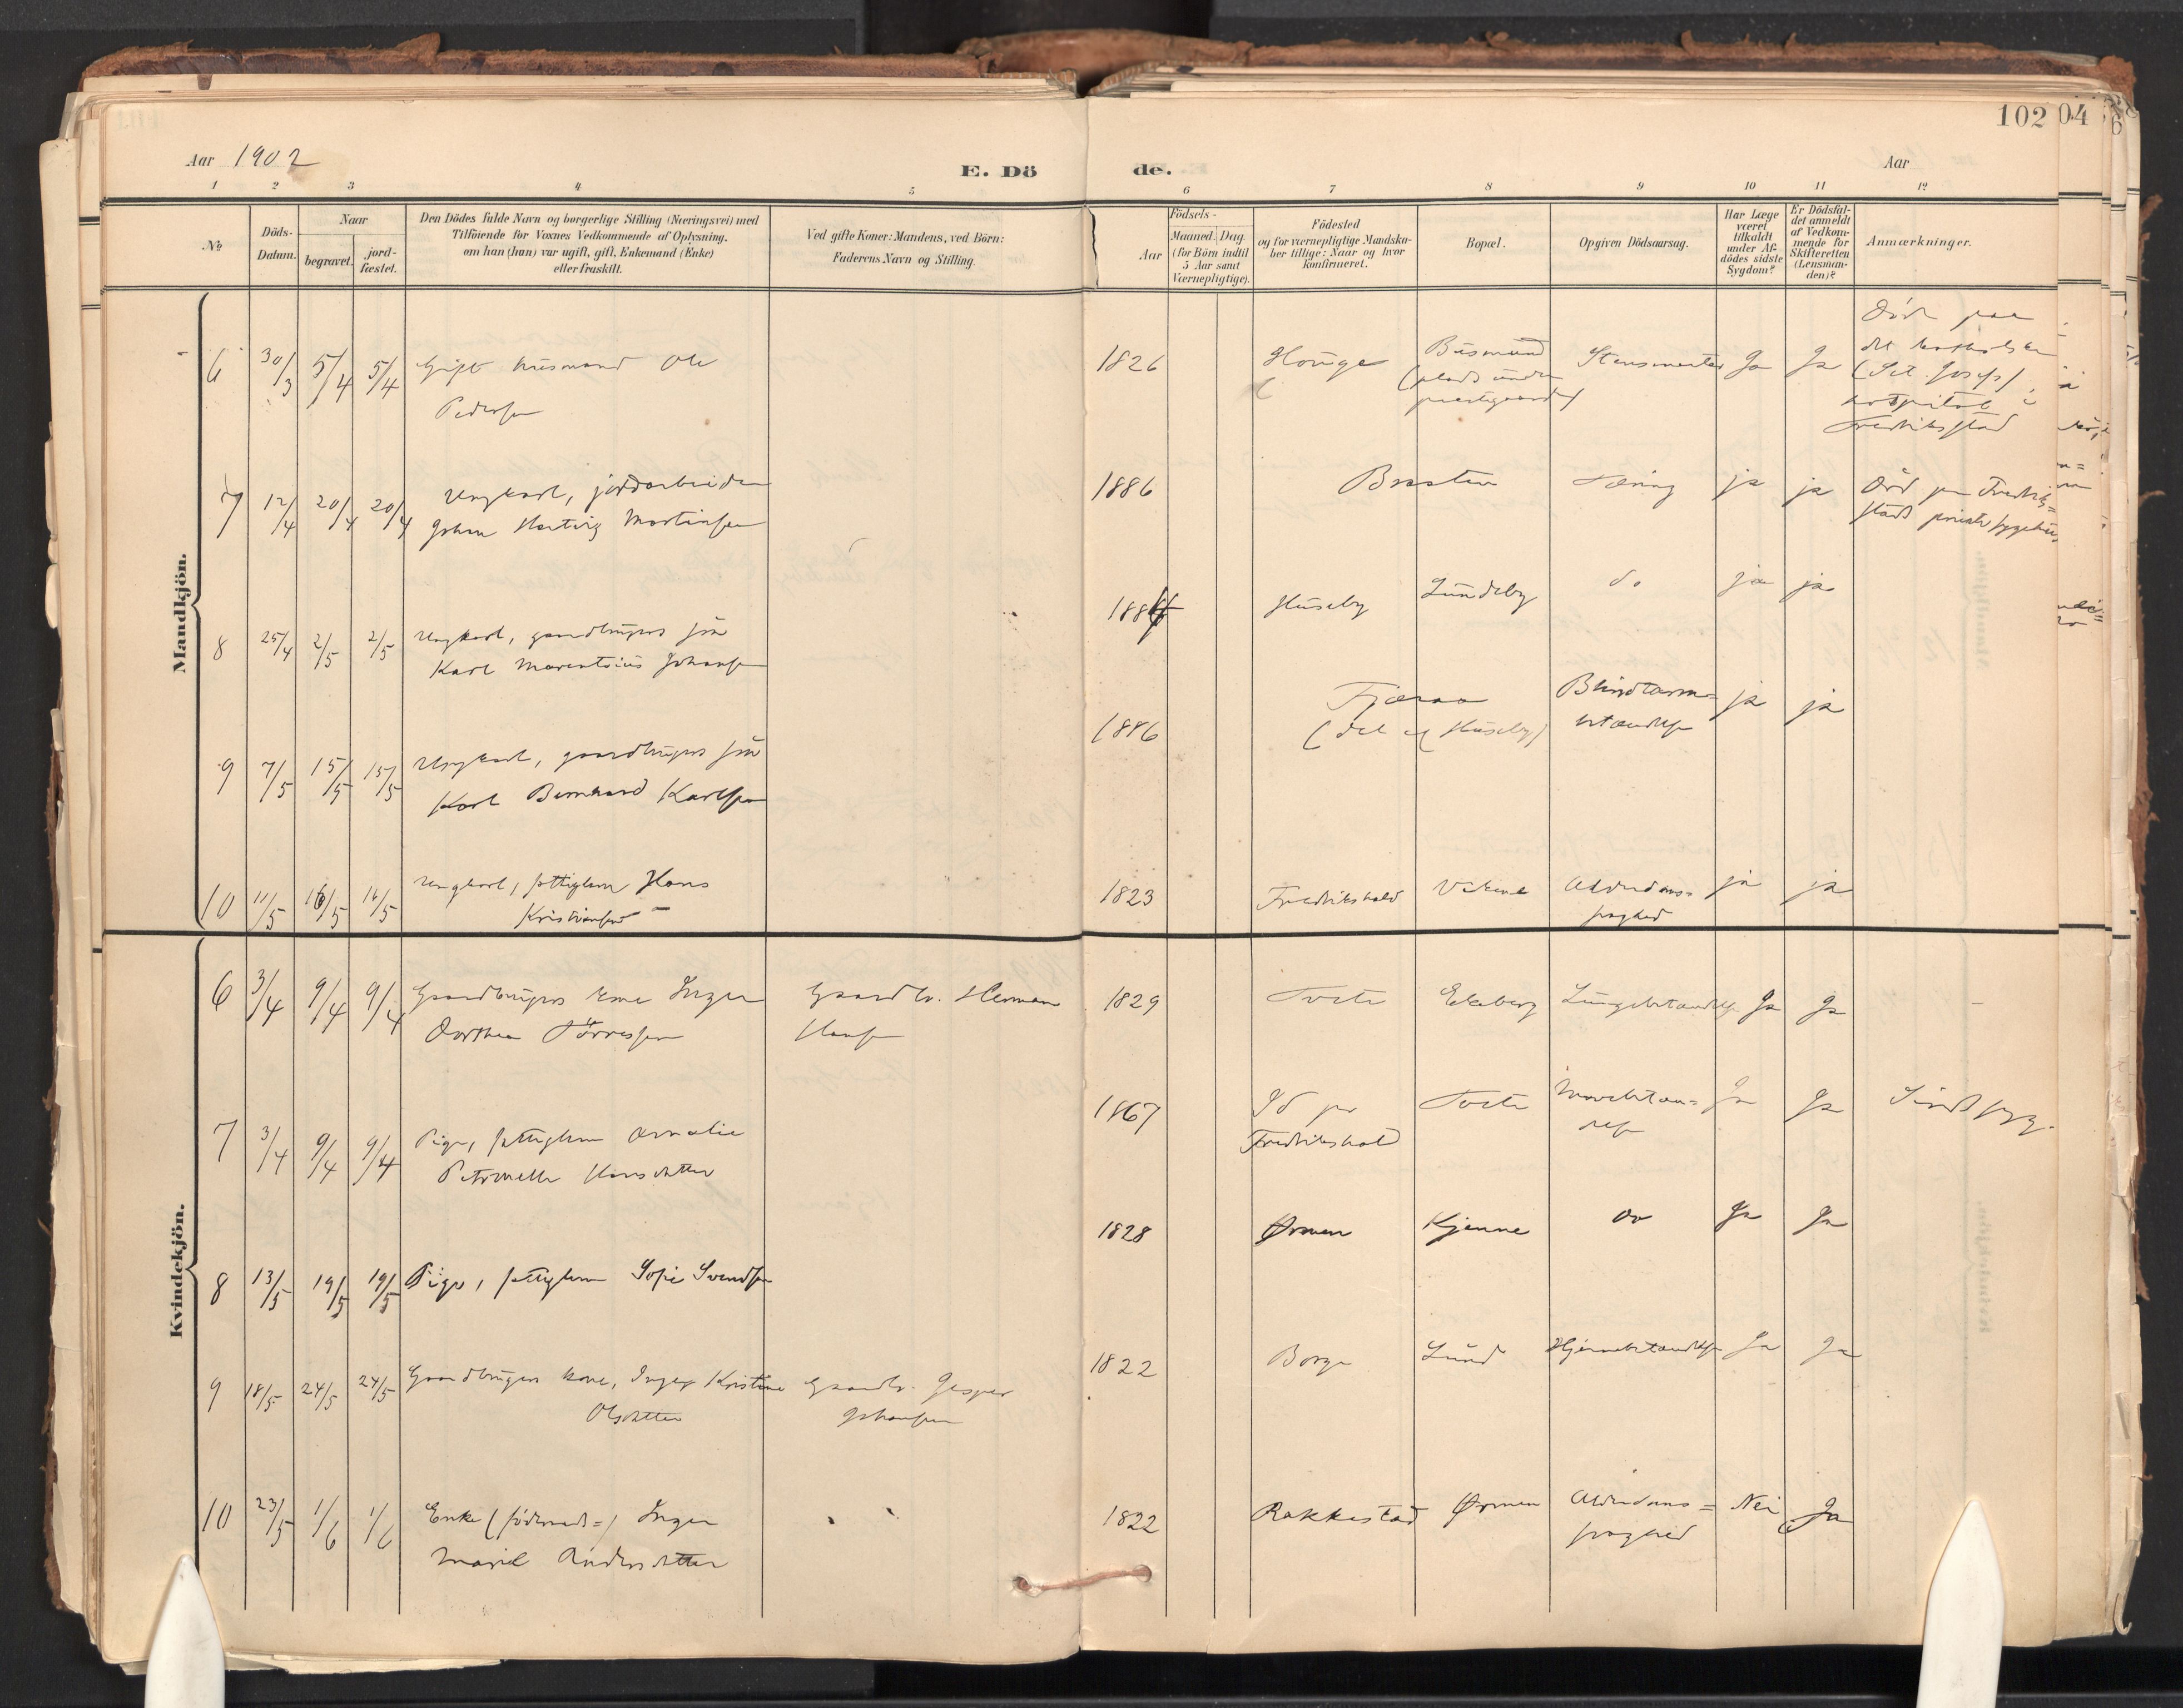 Aar 1902
E. Dö
de.
102
04
Aar
1 2 3 4 5 6 7 8 9 10 11 12
No
Döds-
Datum.
Naar
begravet.
jord-
fæstet.
Den Dödes fulde Navn og borgerlige Stilling (Næringsvei) med
Tilföiende for Voxnes Vedkommende af Oplysning,
om han (hun) var ugift, gift, Enkemand (Enke)
eller fraskilt.
Ved gifte Koner: Mandens, ved Börn:
Faderens Navn og Stilling.
Födsels-
Aar
Maaned. Dag.
(for Börn indtil
5 Aar samt
Værnepligtige).
Födested
og for værnepligtige Mandska-
ber tillige: Naar og hvor
konfirmeret.
Bopæl.
Opgiven Dödsaarsag.
Har Læge
været
tilkaldt
under Af-
dödes sidste
Sygdom?
Er Dödsfal-
det anmeldt
af Vedkom-
mende for
Skifteretten
(Lensman-
den)?
Anmærkninger.
Mandkjön.
6 30/3 5/4 5/4 Gift husmand Ole
Pedersen
1826 Houge Busmund
(plads under
præstegaarden)
Ja Ja
Död paa
det katholske
(Sct. Josefs)
hospital i
Fredriksstad
7 12/4 20/4 20/4 Ungkarl, jordarbeider
Johan Hartvig Martinsen
1886 Braaten Tæring ja ja Död paa Fredrik=
stads private sygehus
8 25/4 2/5 2/5 Ungkarl, gaardbrugers sön
Karl Johansen
1884 Huseby Lundeby do ja ja
9 7/5 15/5 15/5 Ungkarl, gaardbrugers sön
Karl Bernhard Karlsen
1886 Fjæraa
(del af Huseby)
Blindtarms=
betændelse
ja ja
10 11/5 16/5 16/5 Ungkarl, fattiglem Hans
Kristiansen
1823 Fredrikshald Vikene Alderdoms=
svaghed
ja ja
Kvindekjön.
6 3/4 9/4 9/4 Gaardbrugers kone Inger
Dorthea Törresen
Gaardbr. Herman
Hansen
1829 Tvete Ekeberg Lungebetændelse Ja Ja
7 3/4 9/4 9/4 Pige, fattiglem Amalie
Petronelle Hansdatter
1867 Id pr
Fredrikshald
Tvete
Ja Ja Sindssyg.
8 13/5 19/5 19/5 Pige, fattiglem Sofie Svendsen
1828 Ørmen Kjenne do Ja Ja
9 18/5 24/5 24/5 Gaardbrugers kone, Inger Kristine
Olsdatter
Gaardbr. Jesper
Johansen
1822 Borge Lund Hjernebetændelse Ja Ja
10 23/5 1/6 1/6 Enke (föderaads=) Inger
Marie Andersdatter
1822 Rakkestad Ørmen Alderdoms=
svaghed
Nei Ja